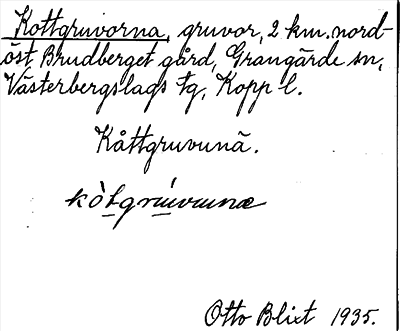 Kottgruvorna, gruvor, 2 km. nord-
öst Brudberget gård, Grangärde sn,
Västerbergslags tg, Kopp. l.
Kåttgruvunä.
kòtgrúvunæ
Otto Blixt 1935.